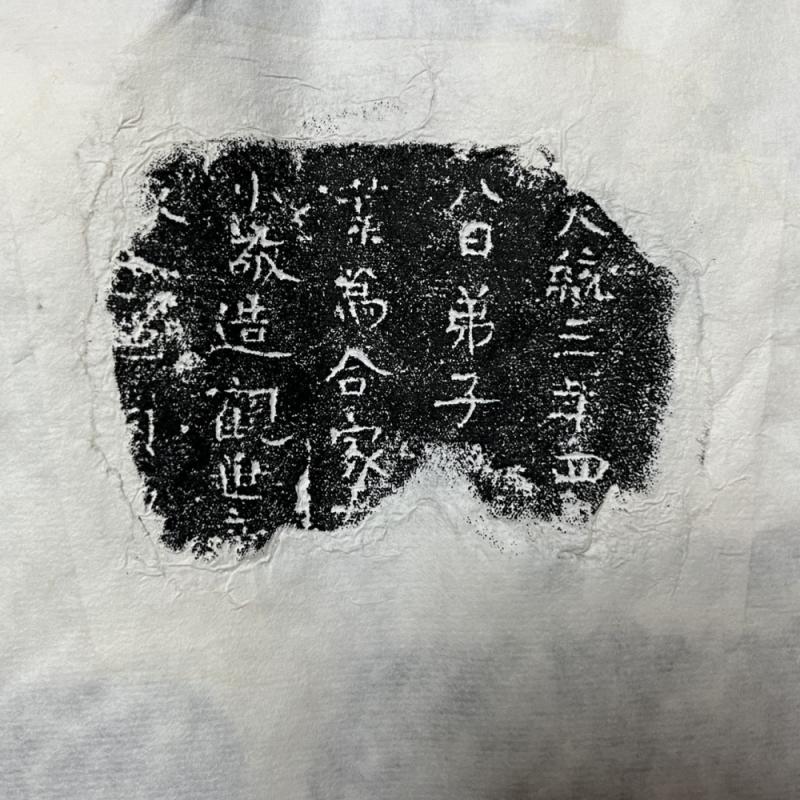 大統三年四
八日弟子
葉萬合家
小敬造觀世